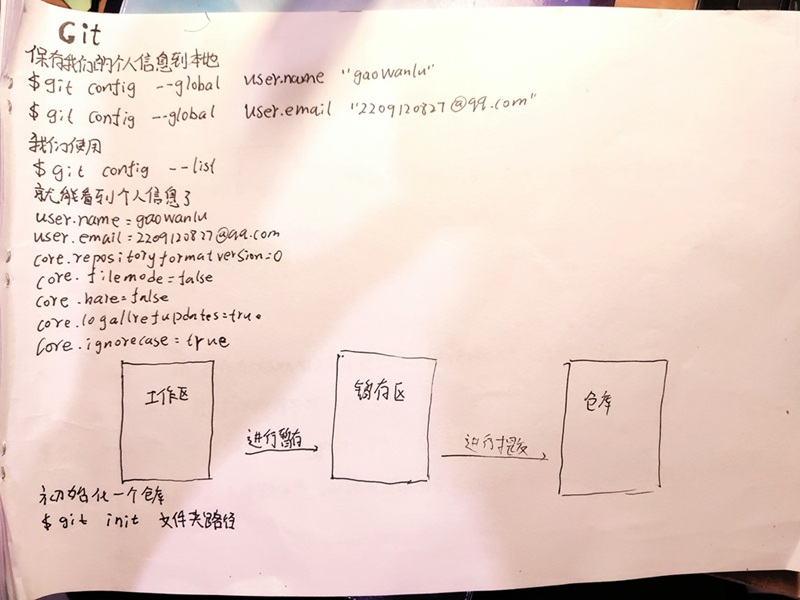 Git
保存我们的个人信息到本地
$git config --global user.name "gaowanlu"
$git config --global user.email "2209120827@qq.com"
我们使用
$git config --list
就能看到个人信息了
user.name=gaowanlu
user.email=2209120827@qq.com
core.repositoryformatversion=0
core.filemode=false
core.bare=false
core.logallrefupdates=true
core.ignorecase=true
工作区
进行暂存
存区
进行提交
仓库
初始化一个仓库
$git init 文件夹路径